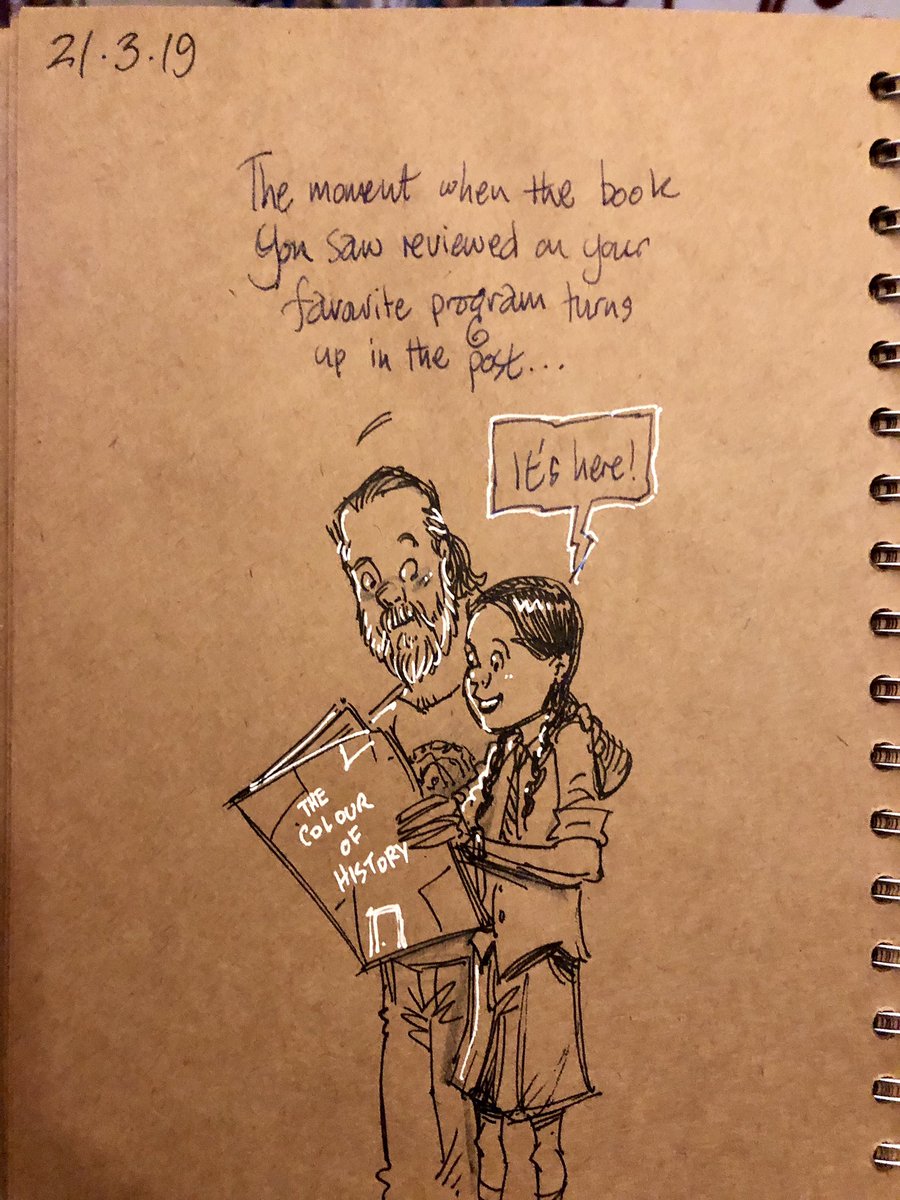 21.3.19
The moment when the book
you saw reviewed on your
favourite program turns
up in the post...
It's here!
THE
COLOUR
OF
HISTORY